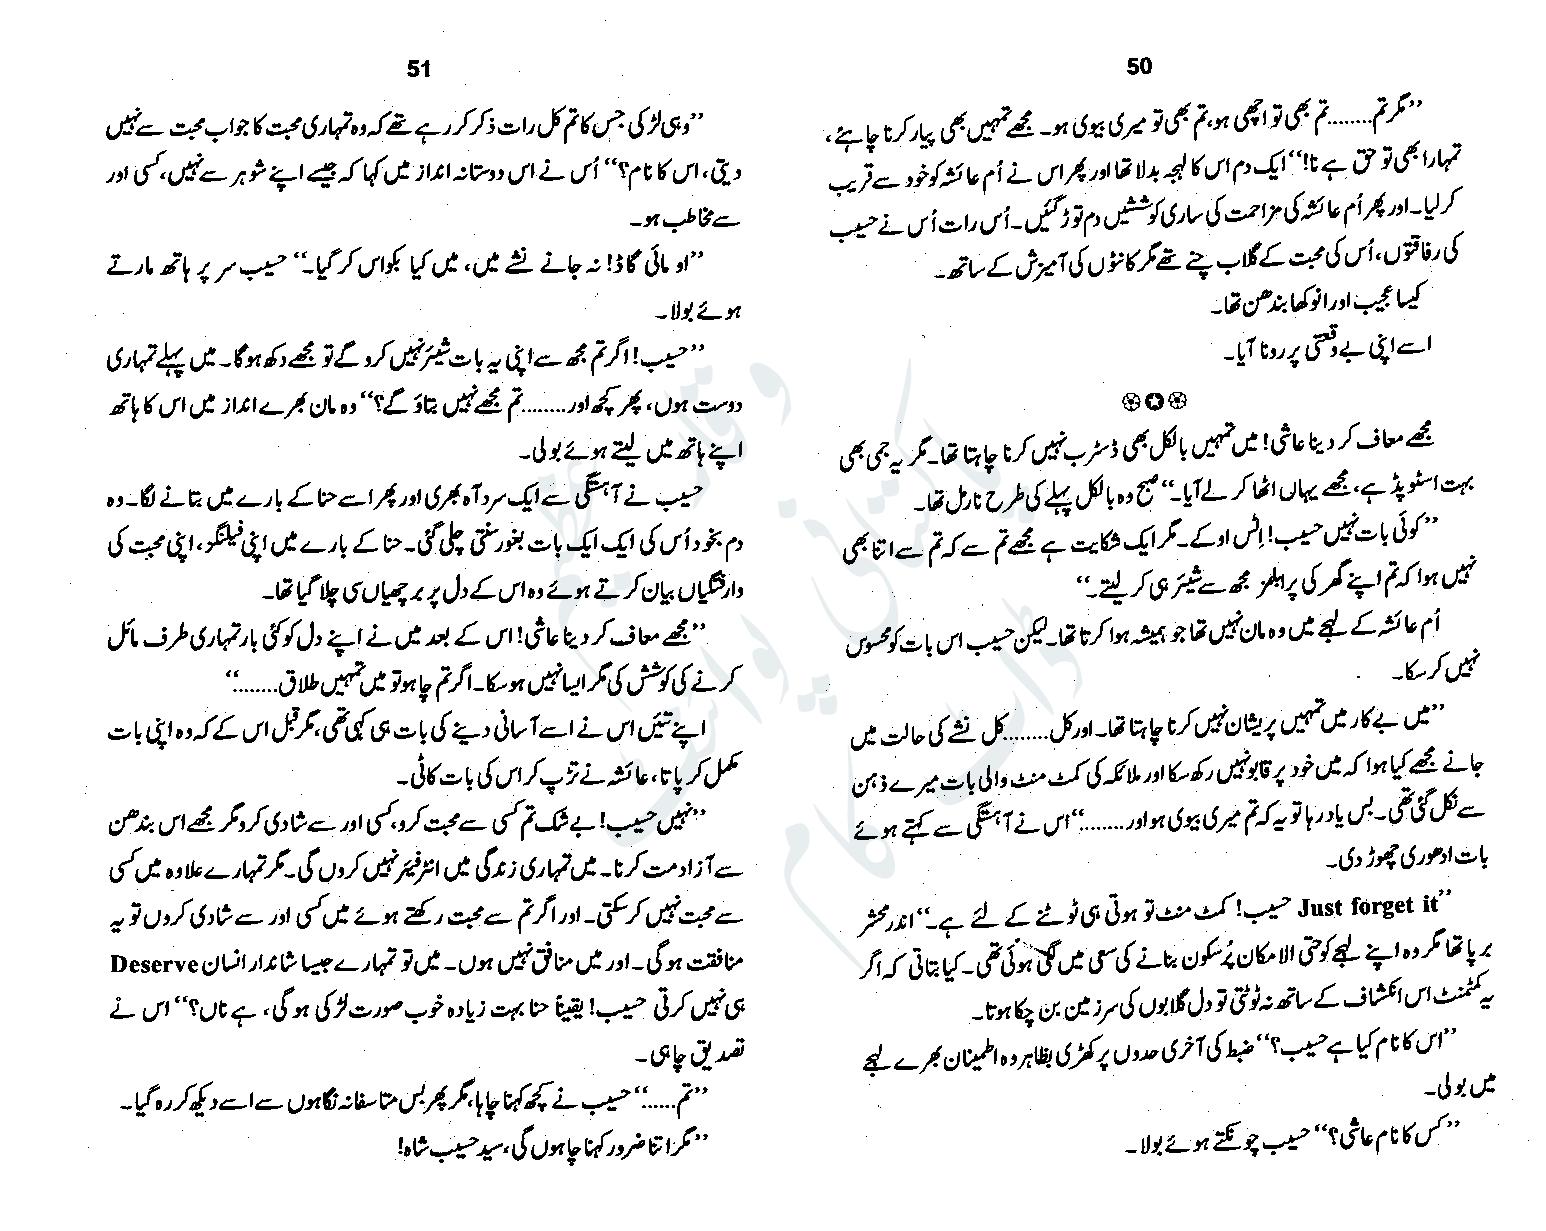 50
”مگر تم........ تم بھی تو اچھی ہو، تم بھی تو میری بیوی ہو۔ مجھے تمہیں بھی پیار کرنا چاہئے،
تمہارا بھی تو حق ہے نا!“ ایک دم اس کا لہجہ بدلا تھا اور پھر اس نے اُم عائشہ کو خود سے قریب
کر لیا۔ اور پھر اُم عائشہ کی مزاحمت کی ساری کوششیں دم توڑ گئیں۔ اُس رات اُس نے حسیب
کی رفاقتوں، اُس کی محبت کے گلاب چنے تھے مگر کانٹوں کی آمیزش کے ساتھ۔
کیسا عجیب اور انوکھا بندھن تھا۔
اسے اپنی بے وقعتی پر رونا آیا۔
مجھے معاف کر دینا عاشی! میں تمہیں بالکل بھی ڈسٹرب نہیں کرنا چاہتا تھا۔ مگر یہ جی بھی
بہت اسٹوپڈ ہے، مجھے یہاں اٹھا کر لے آیا۔“ صبح وہ بالکل پہلے کی طرح نارمل تھا۔
”کوئی بات نہیں حسیب! اِٹس اوکے۔ مگر ایک شکایت ہے مجھے تم سے کہ تم سے اتنا بھی
نہیں ہوا کہ تم اپنے گھر کی پرابلمز مجھ سے شیئر ہی کر لیتے۔“
اُم عائشہ کے لہجے میں وہ مان نہیں تھا جو ہمیشہ ہوا کرتا تھا۔ لیکن حسیب اس بات کو محسوس
نہیں کر سکا۔
”میں بے کار میں تمہیں پریشان نہیں کرنا چاہتا تھا۔ اور کل........ کل نشے کی حالت میں
جانے مجھے کیا ہوا کہ میں خود پر قابو نہیں رکھ سکا اور ملائکہ کی کمٹ منٹ والی بات میرے ذہن
سے نکل گئی تھی۔ بس یاد رہا تو یہ کہ تم میری بیوی ہو اور........“ اس نے آہستگی سے کہتے ہوئے
بات ادھوری چھوڑ دی۔
”Just forget it حسیب! کمٹ منٹ تو ہوتی ہی ٹوٹنے کے لئے ہے۔“ اندر محشر
برپا تھا مگر وہ اپنے لہجے کو حتی الامکان پُرسکون بنانے کی سعی میں لگی ہوئی تھی۔ کیا بتاتی کہ اگر
یہ کمٹمنٹ اس انکشاف کے ساتھ نہ ٹوٹتی تو دل گلابوں کی سرزمین بن چکا ہوتا۔
”اس کا نام کیا ہے حسیب؟“ ضبط کی آخری حدوں پر کھڑی بظاہر وہ اطمینان بھرے لہجے
میں بولی۔
”کس کا نام عاشی؟“ حسیب چونکتے ہوئے بولا۔
51
”وہی لڑکی جس کا تم کل رات ذکر کر رہے تھے کہ وہ تمہاری محبت کا جواب محبت سے نہیں
دیتی، اس کا نام؟“ اُس نے اس دوستانہ انداز میں کہا کہ جیسے اپنے شوہر سے نہیں، کسی اور
سے مخاطب ہو۔
”او مائی گاڈ! نہ جانے نشے میں، میں کیا بکواس کر گیا۔“ حسیب سر پر ہاتھ مارتے
ہوئے بولا۔
”حسیب! اگر تم مجھ سے اپنی یہ بات شیئر نہیں کرو گے تو مجھے دکھ ہوگا۔ میں پہلے تمہاری
دوست ہوں، پھر کچھ اور........ تم مجھے نہیں بتاؤ گے؟“ وہ مان بھرے انداز میں اس کا ہاتھ
اپنے ہاتھ میں لیتے ہوئے بولی۔
حسیب نے آہستگی سے ایک سرد آہ بھری اور پھر اسے حنا کے بارے میں بتانے لگا۔ وہ
دم بخود اُس کی ایک ایک بات بغور سنتی چلی گئی۔ حنا کے بارے میں اپنی فیلنگو، اپنی محبت کی
وارفتگیاں بیان کرتے ہوئے وہ اس کے دل پر برچھیاں سی چلا گیا تھا۔
”مجھے معاف کر دینا عاشی! اس کے بعد میں نے اپنے دل کو کئی بار تمہاری طرف مائل
کرنے کی کوشش کی مگر ایسا نہیں ہو سکا۔ اگر تم چاہو تو میں تمہیں طلاق........“
اپنے تئیں اس نے اسے آسانی دینے کی بات ہی کہی تھی، مگر قبل اس کے کہ وہ اپنی بات
مکمل کر پاتا، عائشہ نے تڑپ کر اس کی بات کاٹی۔
”نہیں حسیب! بے شک تم کسی سے محبت کرو، کسی اور سے شادی کرو مگر مجھے اس بندھن
سے آزاد مت کرنا۔ میں تمہاری زندگی میں انٹرفیئر نہیں کروں گی۔ مگر تمہارے علاوہ میں کسی
سے محبت نہیں کر سکتی۔ اور اگر تم سے محبت رکھتے ہوئے میں کسی اور سے شادی کروں تو یہ
منافقت ہوگی۔ اور میں منافق نہیں ہوں۔ میں تو تمہارے جیسا شاندار انسان Deserve
ہی نہیں کرتی حسیب! یقیناً حنا بہت زیادہ خوب صورت لڑکی ہو گی، ہے ناں؟“ اس نے
تصدیق چاہی۔
”تم......“ حسیب نے کچھ کہنا چاہا، مگر پھر بس متاسفانہ نگاہوں سے اسے دیکھ کر رہ گیا۔
”مگر اتنا ضرور کہنا چاہوں گی، سید حسیب شاہ!